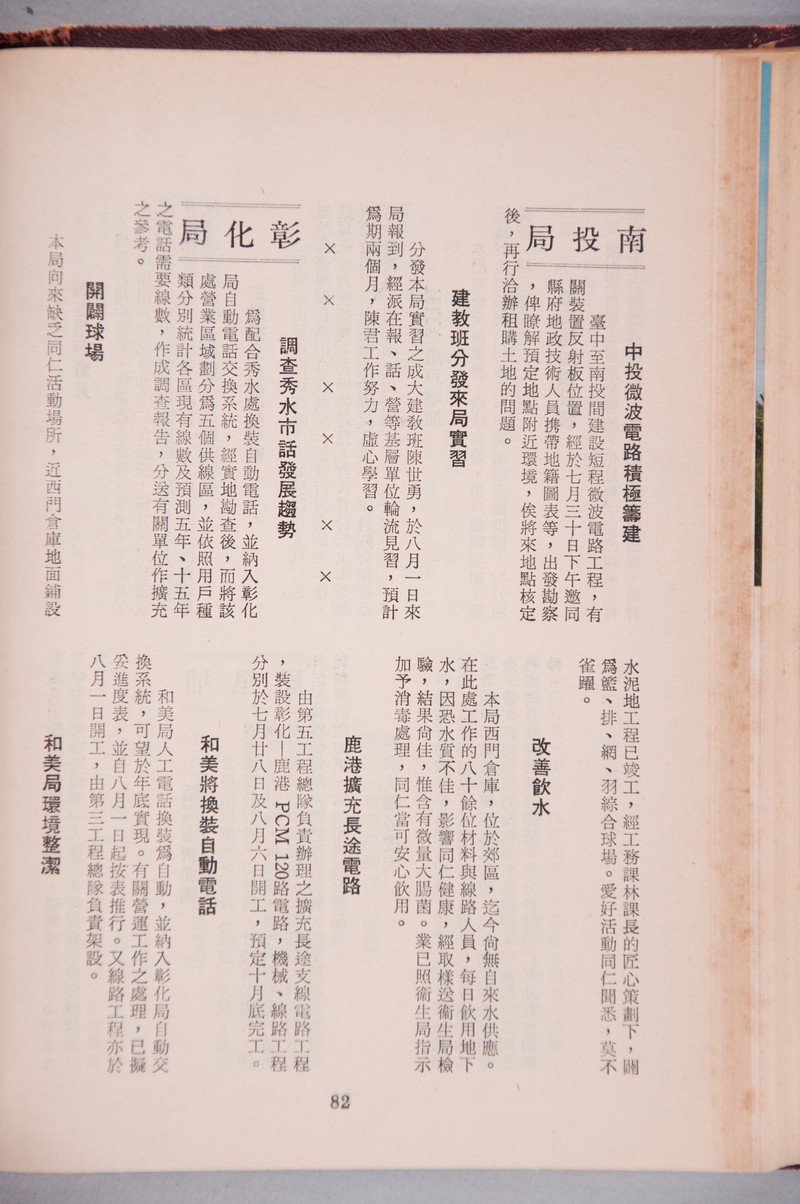 南投局
中投微波電路積極籌建
臺中至南投間建設短程微波電路工程，有
關裝置反射板位置，經於七月三十日下午邀同
縣府地政技術人員携帶地籍圖表等，出發勘察
，俾瞭解預定地點附近環境，俟將來地點核定
後，再行洽辦租購土地的問題。
建教班分發來局實習
分發本局實習之成大建教班陳世勇，於八月一日來
局報到，經派在報、話、營等基層單位輪流見習，預計
爲期兩個月，陳君工作努力，虛心學習。
×　×　×　×　×　×
彰化局
調查秀水市話發展趨勢
爲配合秀水處換裝自動電話，並納入彰化
局自動電話交換系統，經實地勘查後，而將該
處營業區域劃分爲五個供線區，並依照用戶種
類分別統計各區現有線數及預測五年、十五年
之電話需要線數，作成調查報告，分送有關單位作擴充
之參考。
開闢球場
本局向來缺乏同仁活動場所，近西門倉庫地面鋪設
水泥地工程已竣工，經工務課林課長的匠心策劃下，闢
爲籃、排、網、羽綜合球場。愛好活動同仁聞悉，莫不
雀躍。
改善飲水
本局西門倉庫，位於郊區，迄今尙無自來水供應。
在此處工作的八十餘位材料與線路人員，每日飲用地下
水，因恐水質不佳，影響同仁健康，經取樣送衞生局檢
驗，結果尙佳，惟含有微量大腸菌。業已照衞生局指示
加予消毒處理，同仁當可安心飲用。
鹿港擴充長途電路
由第五工程總隊負責辦理之擴充長途支線電路工程
，裝設彰化—鹿港 PCM 120路電路，機械、線路工程
分別於七月廿八日及八月六日開工，預定十月底完工。
和美將換裝自動電話
和美局人工電話換裝爲自動，並納入彰化局自動交
換系統，可望於年底實現。有關營運工作之處理，已擬
妥進度表，並自八月一日起按表推行。又線路工程亦於
八月一日開工，由第三工程總隊負責架設。
和美局環境整潔
82